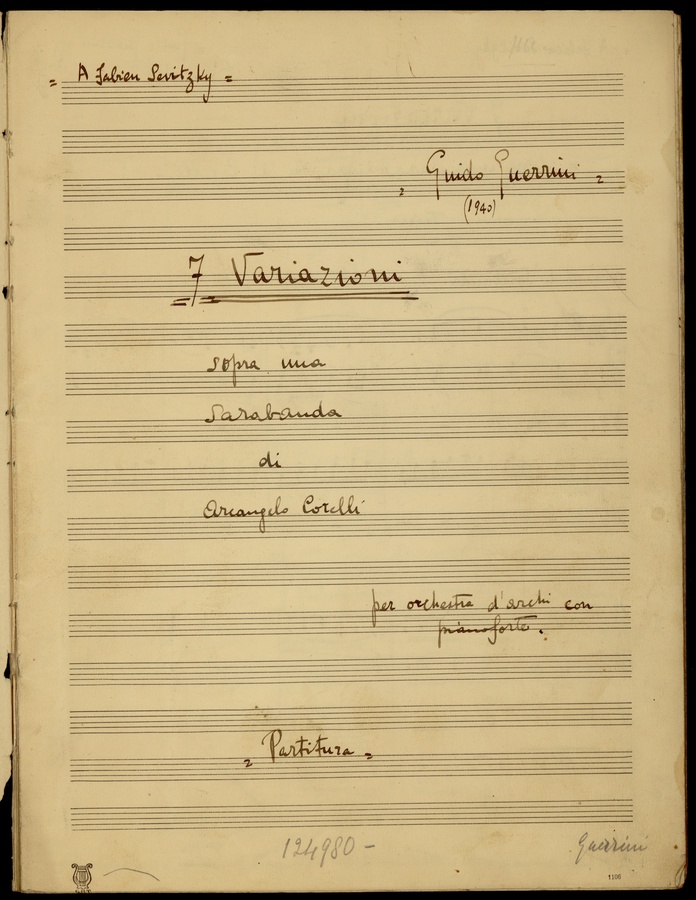 = A Fabien Sevitzky =
= Guido Guerrini =
(1940)
7 Variazioni
sopra una
Sarabanda
di
Arcangelo Corelli
per orchestra d'archi con
pianoforte.
= Partitura =
124980 -
Guerrini
1100